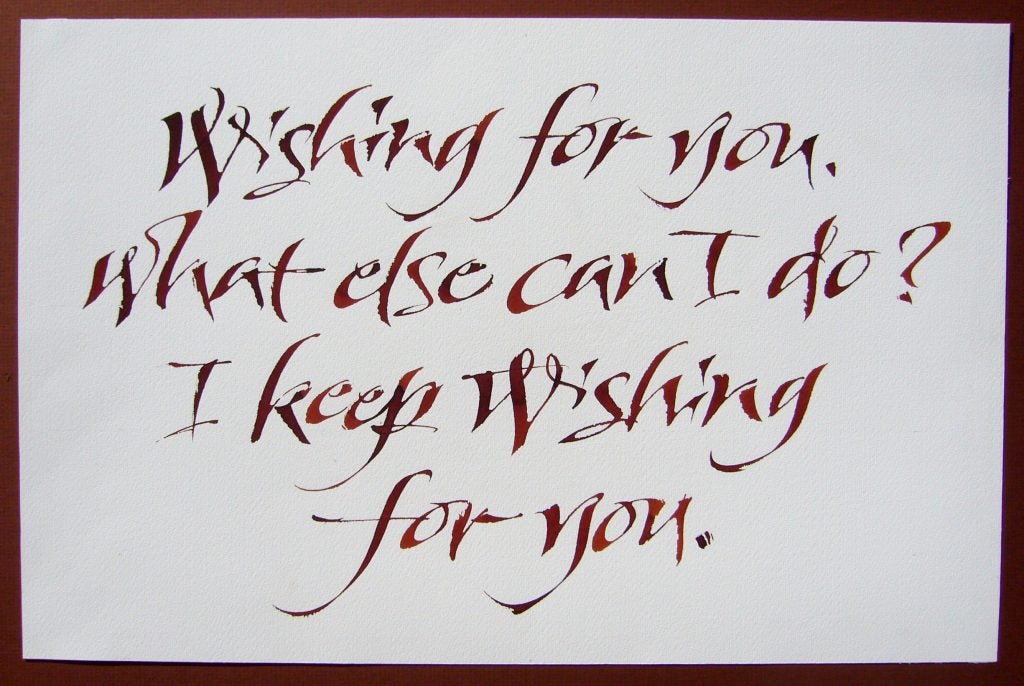 Wishing for you.
What else can I do?
I keep Wishing
for you.